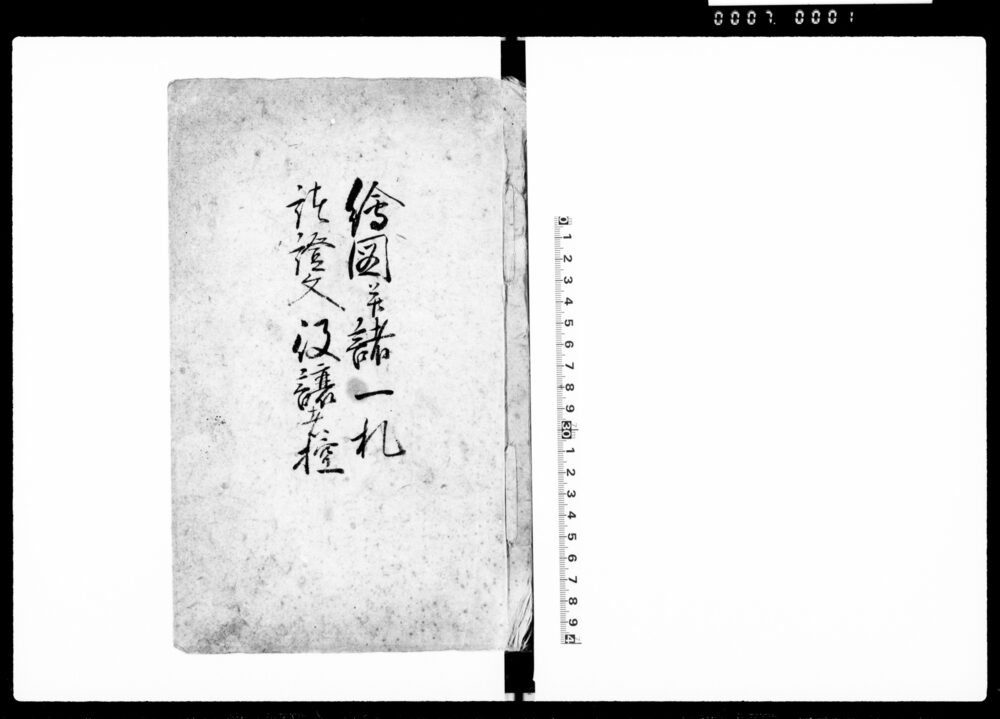 0007 0001
繪圖并諸一札
諸證文役譲古控
0 1 2 3 4 5 6 7 8 9 30 1 2 3 4 5 6 7 8 9 4